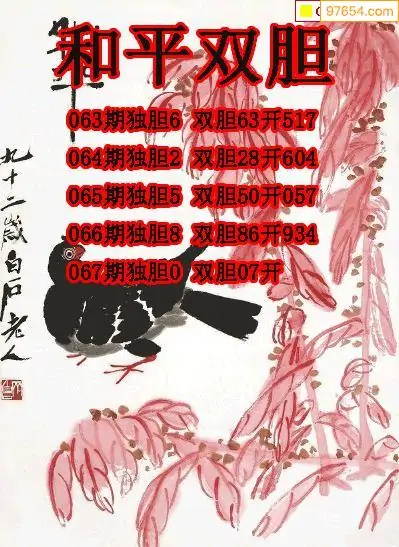 97654.com
和平双胆
063期独胆6 双胆63开517
064期独胆2 双胆28开604
065期独胆5 双胆50开057
066期独胆8 双胆86开934
067期独胆0 双胆07开
九十二岁白石老人